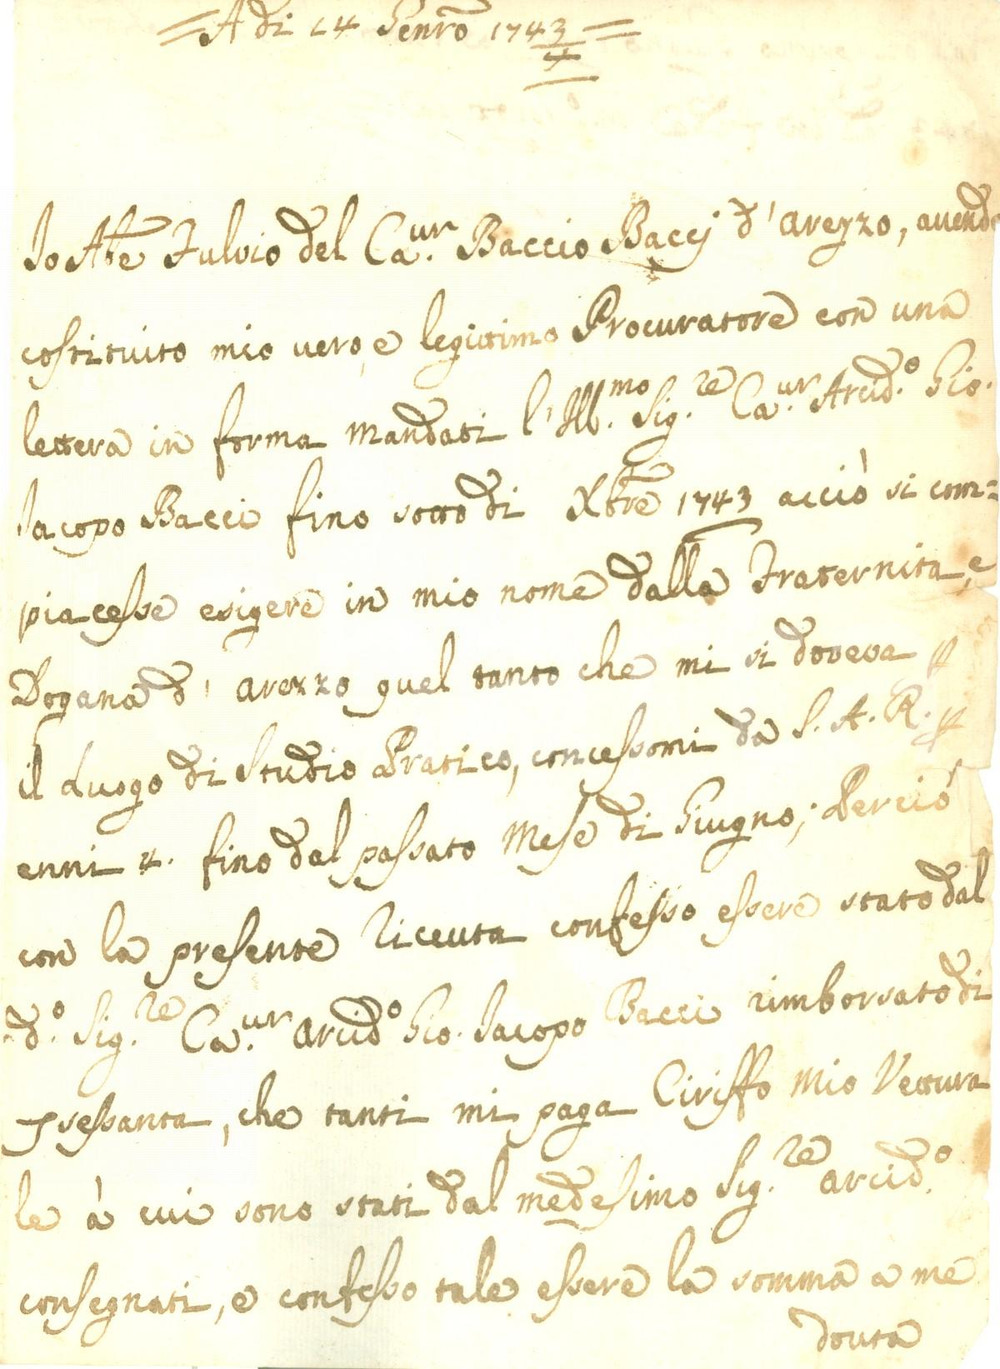 = A di 14 Genro 1743 =
4
Io Abe Fulvio del Caur. Baccio Baccj d'Arezzo, avendo
costituito mio vero, e legittimo Procuratore con una
lettera in forma mandati l'Ill.mo Sig.re Caur. Arcid.o Gio.
Iacopo Bacci fino sotto di Xbre 1743 acciò si com=
piacesse esigere in mio nome dalla Fraternita, e
Dogana d'Arezzo quel tanto che mi si doveva
il Luogo di Studio Pratico, concessomi da S. A. R.
enni 4. fino dal passato Mese di Giugno; Perciò
con la presente riceuta confesso essere stato dal
d.o Sig.re Caur. Arcid.o Gio. Iacopo Bacci rimborsato di
sessanta, che tanti mi paga Ciriffo mio Vettura
le à cui sono stati dal medesimo Sig.re Arcid.o
consegnati, e confesso tale essere la somma a me
douta